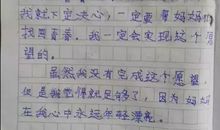 我就下定决心，一定要帮妈妈
找周	，我一定会实现这个愿
望的。
虽然我没有完成这个愿望，
但是我觉得就足够了，因为妈妈
在我心中永远年轻漂亮。